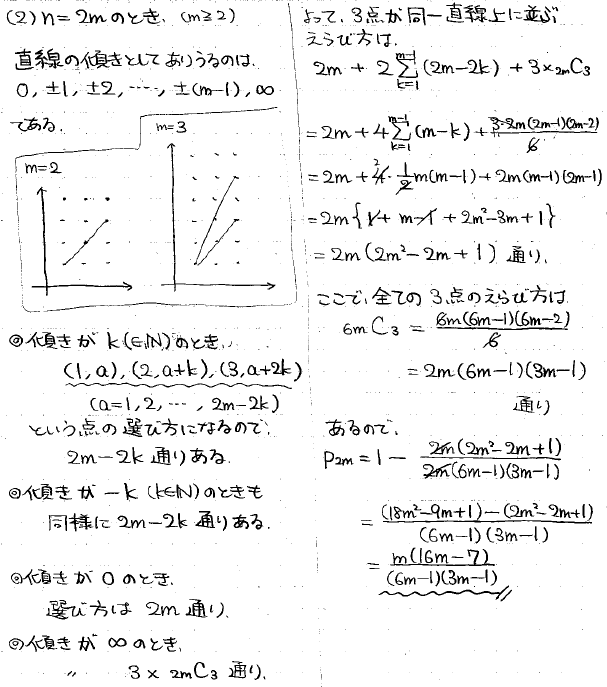 (2) n=2mのとき、(m≧2)
直線の傾きとしてありうるのは、
0, ±1, ±2, ‥‥, ±(m-1), ∞
である。
m=2
m=3
◎傾きが k(∈N)のとき、
(1,a), (2,a+k), (3,a+2k)
(a=1,2, ‥‥, 2m-2k)
という点の選び方になるので、
2m-2k 通りある。
◎傾きが -k (k∈N)のときも
同様に 2m-2k 通りある。
◎傾きが 0 のとき、
選び方は 2m 通り。
◎傾きが ∞ のとき、
〃 3 × 2mC3 通り。
よって、3点が同一直線上に並ぶ
えらび方は、
2m + 2 Σ[k=1, m-1] (2m-2k) + 3×2mC3
= 2m + 4 Σ[k=1, m-1] (m-k) + 3·2m(2m-1)(2m-2)/6
= 2m + 4·1/2 m(m-1) + 2m(m-1)(2m-1)
= 2m{1 + m-1 + 2m²-3m+1}
= 2m(2m²-2m+1) 通り。
ここで、全ての3点のえらび方は
6mC3 = 6m(6m-1)(6m-2)/6
= 2m(6m-1)(3m-1)
通り
あるので、
P2m = 1 - 2m(2m²-2m+1)/2m(6m-1)(3m-1)
= (18m²-9m+1)-(2m²-2m+1)/(6m-1)(3m-1)
= m(16m-7)/(6m-1)(3m-1)